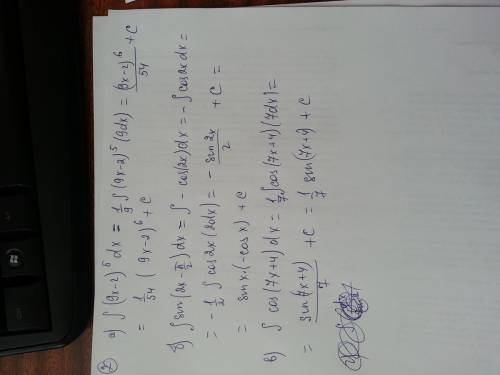 ② а) ∫(9x-2)⁵dx = 1/9 ∫(9x-2)⁵(9dx) = (9x-2)⁶/54 + C
= 1/54 (9x-2)⁶ + C
б) ∫sin(2x-π/2)dx = ∫-cos(2x)dx = -∫cos2xdx =
= -1/2 ∫cos2x(2dx) = - sin2x/2 + C =
= sinx·(-cosx) + C
в) ∫cos(7x+4)dx = 1/7 ∫cos(7x+4)(7dx) =
= sin(7x+4)/7 + C = 1/7 sin(7x+4) + C